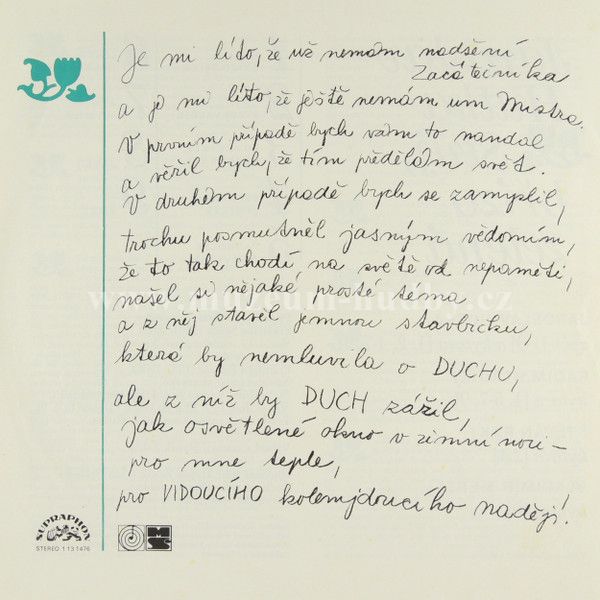 Je mi líto, že už nemám nadšení
Začátečníka
a je mi líto, že ještě nemám um Mistra.
V prvním případě bych vám to nandal
a věřil bych, že tím předělám svět.
V druhém případě bych se zamyslil,
trochu posmutněl jasným vědomím,
že to tak chodí na světě od nepaměti,
našel si nějaké prosté téma
a z něj stavěl jemnou stavbičku,
která by nemluvila o DUCHU,
ale z níž by DUCH zářil,
jak osvětlené okno v zimní noci –
pro mne teple,
pro VIDOUCÍHO kolemjdoucího nadějí!
www.muzeum-hudby.cz
SUPRAPHON
STEREO 1 13 1476
MS